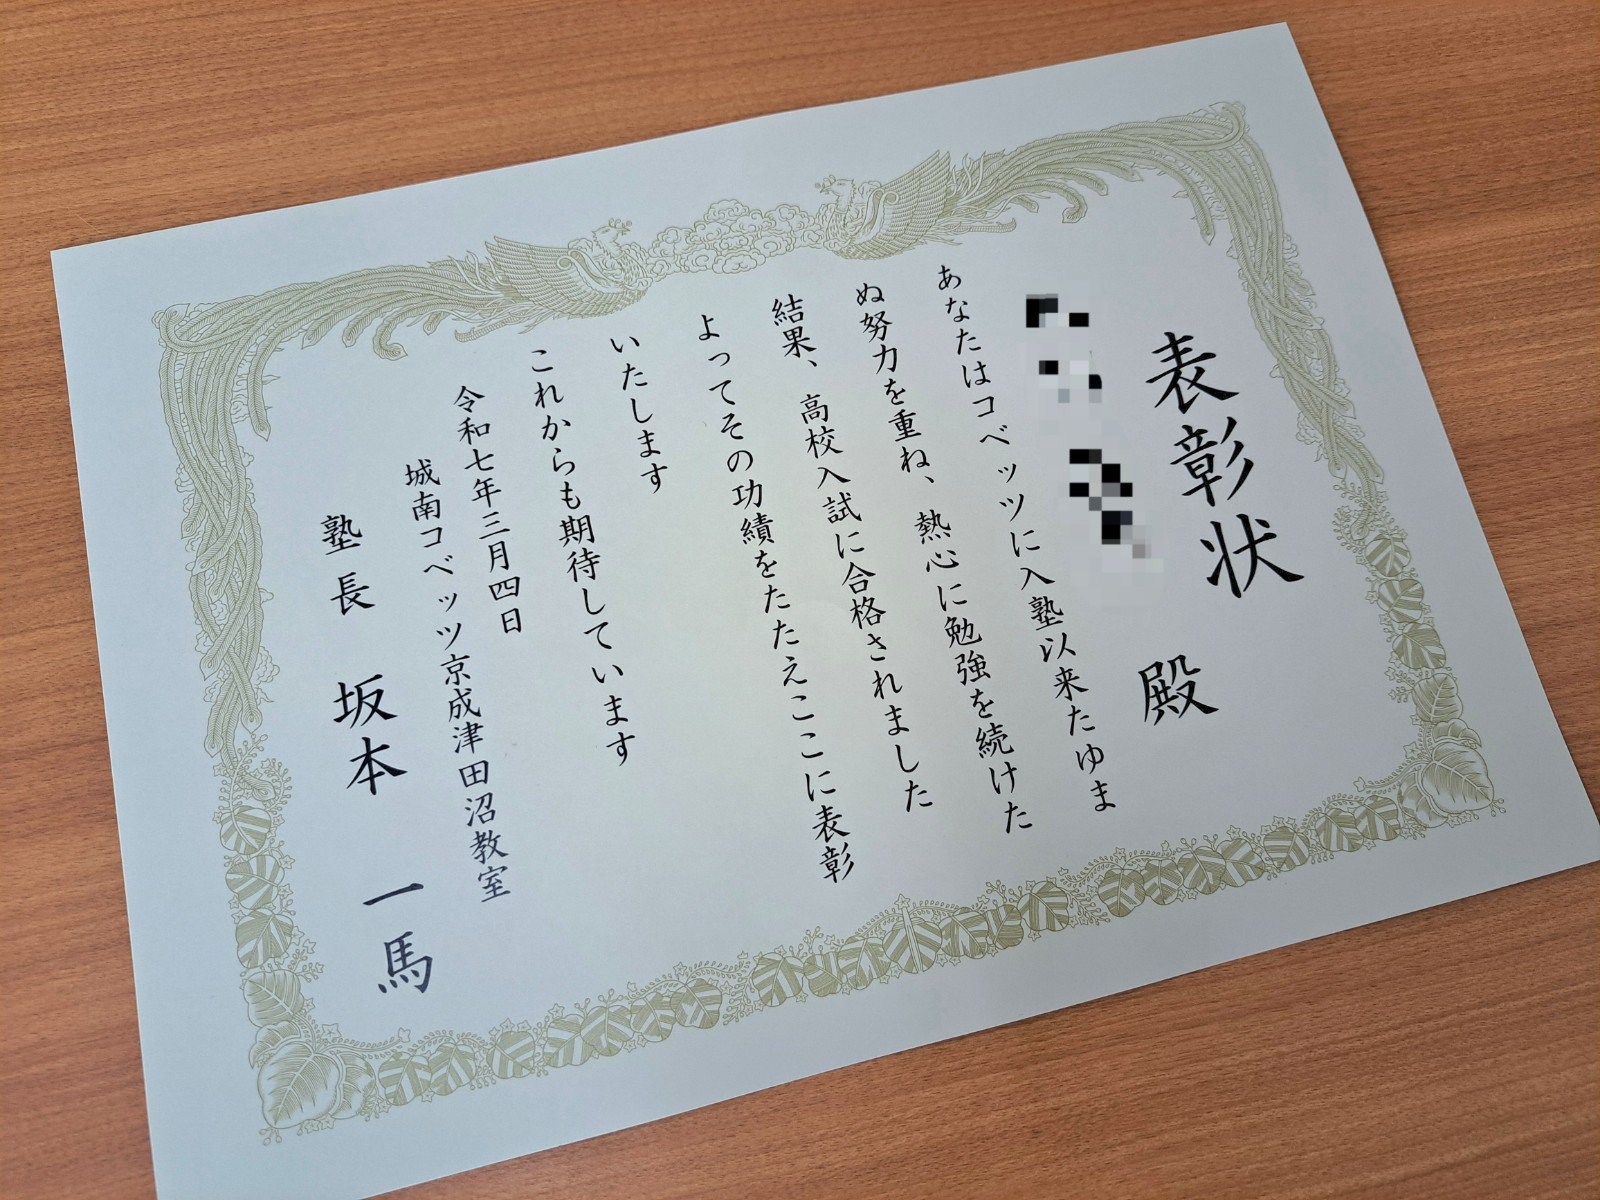 表彰状
殿
あなたはコベッツに入塾以来たゆま
ぬ努力を重ね、熱心に勉強を続けた
結果、高校入試に合格されました
よってその功績をたたえここに表彰
いたします
これからも期待しています
令和七年三月四日
城南コベッツ京成津田沼教室
塾長 坂本 一馬